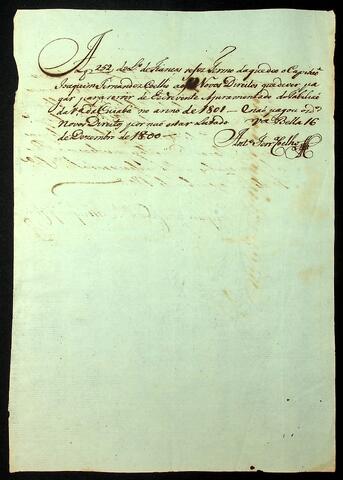 A f. 252 do L.º de Fianças se fez termo da que deo o Capitão
Joaquim Fernandes Coelho aos Novos Direitos que deve pa
gar por servir de Escrevente Ajuramentado do Tabelião
da V.ª do Cuiabá no anno de 1801 - não pagou os d.ºs
Novos Direitos por não estar Lotado V.ª Bella 16
de Dezembro de 1800